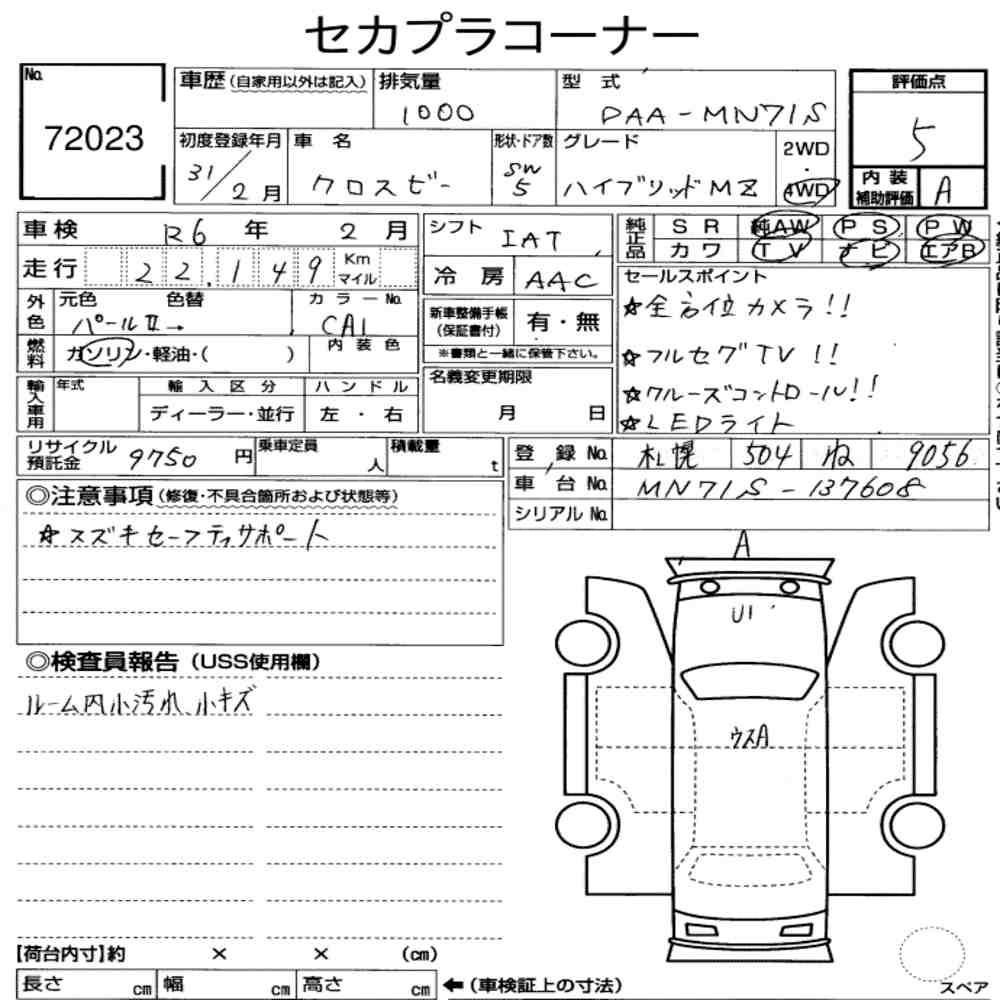 セカプラコーナー
No. 72023
車歴(自家用以外は記入) 排気量 1000 型 式 DAA-MN71S
初度登録年月 31/2月 車 名 クロスビー 形状・ドア数 SW 5 グレード ハイブリッドMZ 2WD・4WD
評価点 5
内装補助評価 A
車検 R6 年 2 月
走行 22,149 Km マイル
外色 元色 パールII→ 色替 カラーNo. CA1
燃料 ガソリン・軽油・( ) 内装色
輸入車用 年式 輸入区分 ディーラー・並行 ハンドル 左・右
リサイクル預託金 9750 円 乗車定員 人 積載量 t
シフト IAT
冷房 AAC
新車整備手帳(保証書付) 有・無
※書類と一緒に保管下さい。
名義変更期限 月 日
純正品 SR 純AW PS PW
カワ TV ナビ エアB
セールスポイント
☆全方位カメラ!!
☆フルセグTV!!
☆クルーズコントロール!!
☆LEDライト
登録No. 札幌 504 ね 9056
車台No. MN71S-137608
シリアルNo.
◎注意事項(修復・不具合箇所および状態等)
☆スズキセーフティサポート
◎検査員報告(USS使用欄)
ルーム内小汚れ、小キズ
A
U1
ウスA
【荷台内寸】約 × × (cm)
長さ cm 幅 cm 高さ cm ←(車検証上の寸法)
スペア